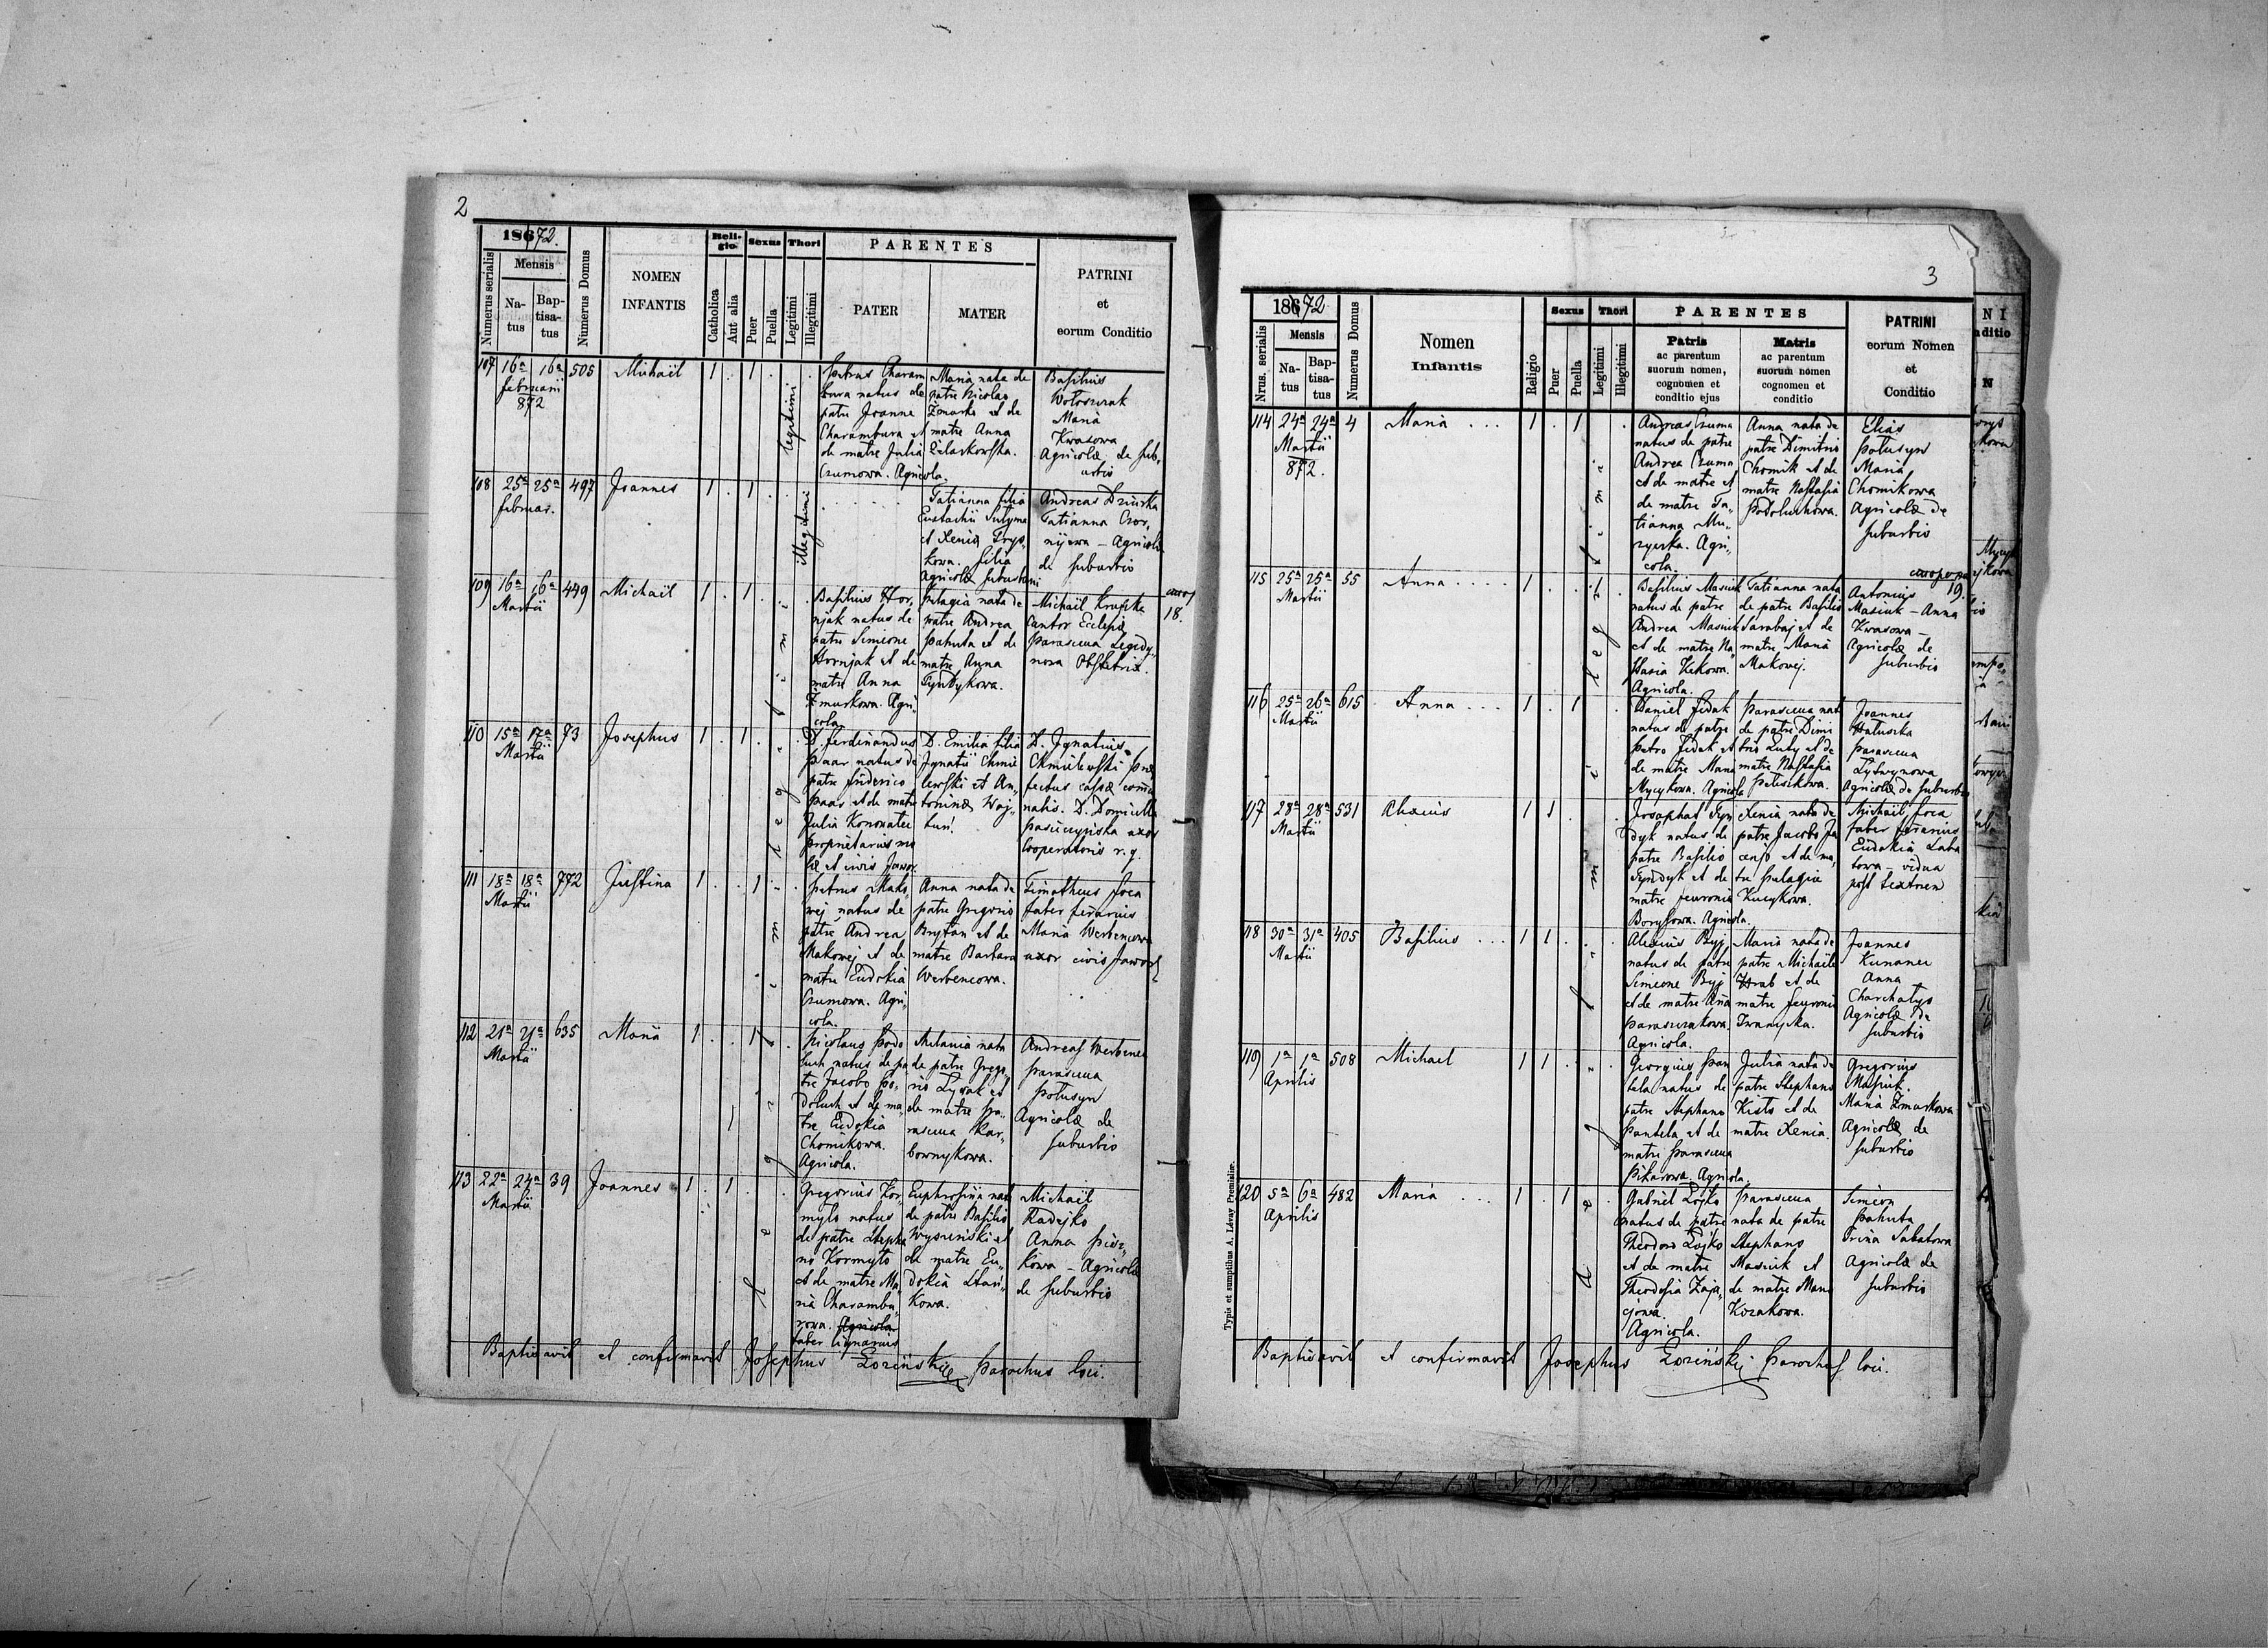 2
18672.
Numerus serialis
Mensis
Na-
tus
Bap-
tisa-
tus
Numerus Domus
NOMEN
INFANTIS
Reli-
gio
Catholica
Aut alia
Sexus
Puer
Puella
Thori
Legitimi
Illegitimi
PARENTES
PATER
MATER
PATRINI
et
eorum Conditio
107 16ª 16ª 505 Michaël 1 . 1 . legitimi .
februarii
872
Petrus Charam
bura natus de
patre Joanne
Charambura et
de matre Julia
Czumowa. Agricola.
Maria nata de
patre Nicolao
Żmurko et de
matre Anna
Basilius
Wołoszczak
Maria
Kwasowa
Agricolæ de sub,
urbio
108 25ª 25ª 497 Joannes 1 . 1 . . illegitimi
februar.
Tatianna filia
Eustachii
et Xenia
kowa. filia
Agricolæ suburbani
Andreas
Tatianna Czor,
nijewa – Agricolæ
de suburbio
109 16ª 16ª 449 Michaël 1 . 1 . .
Martii
Basilius Hor,
njak natus de
patre Simeone
Hornjak et de
matre Anna
Żmurkowa. Agri,
cola.
Pelagia nata de
patre Andrea
Pahuta et de
matre Anna
Tyndykowa.
Michaël Krupka
Cantor Eclesiæ
Parascewa
Obstetrix.
18.
110 15ª 17ª 73 Josephus 1 . 1 . .
Martii
D. Ferdinandus
Paar natus de
patre Friderico
Paar et de matre
Julia
proprietarius mo
læ et civis Jawor.
D. Emilia filia
Ignatii Chmie
lewski et An,
toninæ Woj,
tuń.
D. Ignatius
Chmielewski Præ
fectus cassæ comu
nalis. D. Domicella
uxor
Cooperatoris r. g.
111 18ª 18ª 772 Justina 1 . . 1 . .
Martii
Petrus Mako
wej natus de
patre Andrea
Makowej et de
matre Eudokia
Czumowa. Agri,
cola.
Anna nata de
patre Gregorio
et de
matre Barbara
Werbencowa.
Timotheus Foca
faber ferarius
Maria Werbencowa
uxor civis Jaworo
112 21ª 21ª 635 Maria 1 . . 1 .
Martii
Nicolaus Podo
luch natus de pa
tre Jacobo Po,
doluch et de ma,
tre Eudokia
Chomikowa.
Agricola.
Melania nata
de patre Grego,
rio Łysak et
de matre Pa,
rascewa Kar,
bownykowa.
Andreas Werbenec
Parascewa
Potusyn
Agricolæ de
suburbio
113 22ª 24ª 39 Joannes 1 . 1 . .
Martii
Gregorius Kor,
myło natus
de patre Stepha
no Kormyło
et de matre Ma,
ria Charambu,
rowa. Agricola
faber lignarius
Euphrosina nata
de patre Basilio
Wysieński et
de matre Eu,
dokia Stań,
kowa.
Michaël
Radejko
Anna
kowa – Agricolæ
de suburbio
legitimi
Baptisavit et confirmavit Josephus Łoziński Parochus loci.
3
18672
Nrus. serialis
Mensis
Na-
tus
Bap-
tisa-
tus
Numerus Domus
Nomen
Infantis
Religio
Sexus
Puer
Puella
Thori
Legitimi
Illegitimi
PARENTES
Patris
ac parentum
suorum nomen,
cognomen et
conditio ejus
Matris
ac parentum
suorum nomen
cognomen et
conditio
PATRINI
eorum Nomen
et
Conditio
114 24ª 24ª 4 Maria ... 1 . 1 .
Martii
872.
Andreas Czuma
natus de patre
Andrea Czuma
et de matre et
de matre Ta,
tianna Mu,
Agri,
cola.
Anna nata de
patre Dimitrio
Chomik et de
matre Nastasia
Podoluchowa.
Elias
Potusyn
Maria
Chomikowa
Agricolæ de
suburbio
115 25ª 25ª 55 Anna .... 1 . .
Martii
Basilius Masiuk
natus de patre
Andrea Masiuk
et de matre Na,
stasia
Agricola.
Tatianna nata
de patre Basilio
Sarabaj et de
matre Maria
Makowej.
19.
Antonius
Masiuk – Anna
Kwasowa –
Agricolæ de
suburbio
116 25ª 26ª 615 Anna ... 1 . 1 .
Martii
Daniel Fedak
natus de patre
Petro Fedak et
de matre Maria
Mycykowa. Agricola
Parascewa nata
de patre Dimi
trio Luty et de
matre Nastasia
Joannes
Parascewa
Lytwynowa
Agricolæ de suburbio
117 28ª 28ª 531 Alexius 1 1 .
Martii
Josaphat Tyn
dyk natus de
patre Basilio
Tyndyk et de
matre Fevronia
Borysowa. Agricola.
Xenia nata de
patre Jacobo
et de ma,
tre Pelagia
Kucykowa.
Michaël Foca
faber ferarius
Eudokia
– vidua
post textorem
118 30ª 31ª 405 Basilius ... 1 1 . .
Martii
Alexius Byj
natus de patre
Simeone Byj
et de matre Anna
Agricola.
Maria nata de
patre Michaële
Hrab et de
matre Fevronia
Joannes
Kunanec
Anna
Charchatys
Agricolæ de
suburbio
119 1ª 1ª 508 Michael 1 1 . .
Aprilis
Georgius Pan
tela natus de
patre Stephano
Pantela et de
matre Parascewa
Agricola.
Julia nata de
patre Stephano
Kisto et de
matre Xenia.
Gregorius
Masiuk.
Maria Żmurkowa
Agricolæ de
suburbio
120 5ª 6ª 482 Maria ... 1 . 1 .
Aprilis
Gabriel Łojko
natus de patre
Theodoro Łojko
et de matre
Theodosia Zaja,
cowa.
Agricola.
Parascewa
nata de patre
Stephano
Masiuk et
de matre Maria
Kozakowa.
Simeon
Pahuta
Irina Sabatowa
Agricolæ de
suburbio
Legitimi
Baptisavit et confirmavit Josephus Łoziński Parochus loci.
Typis et sumptibus A. Lévay Premisliæ.